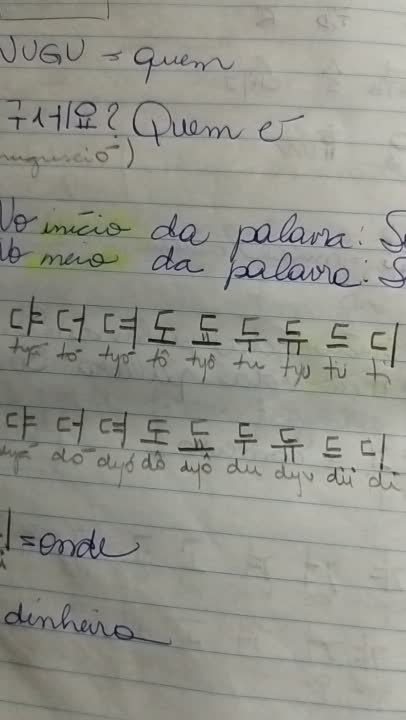 NUGU = quem
구세요? Quem é
nuguseió)
No início da palavra: S
No meio da palavra: S
댜 더 뎌 도 됴 두 듀 드 디
tyá tó tyó tô tyô tu tyu tü ti
댜 더 뎌 도 됴 두 듀 드 디
dyá dó dyó dô dyô du dyu dü di
= onde
dinheiro